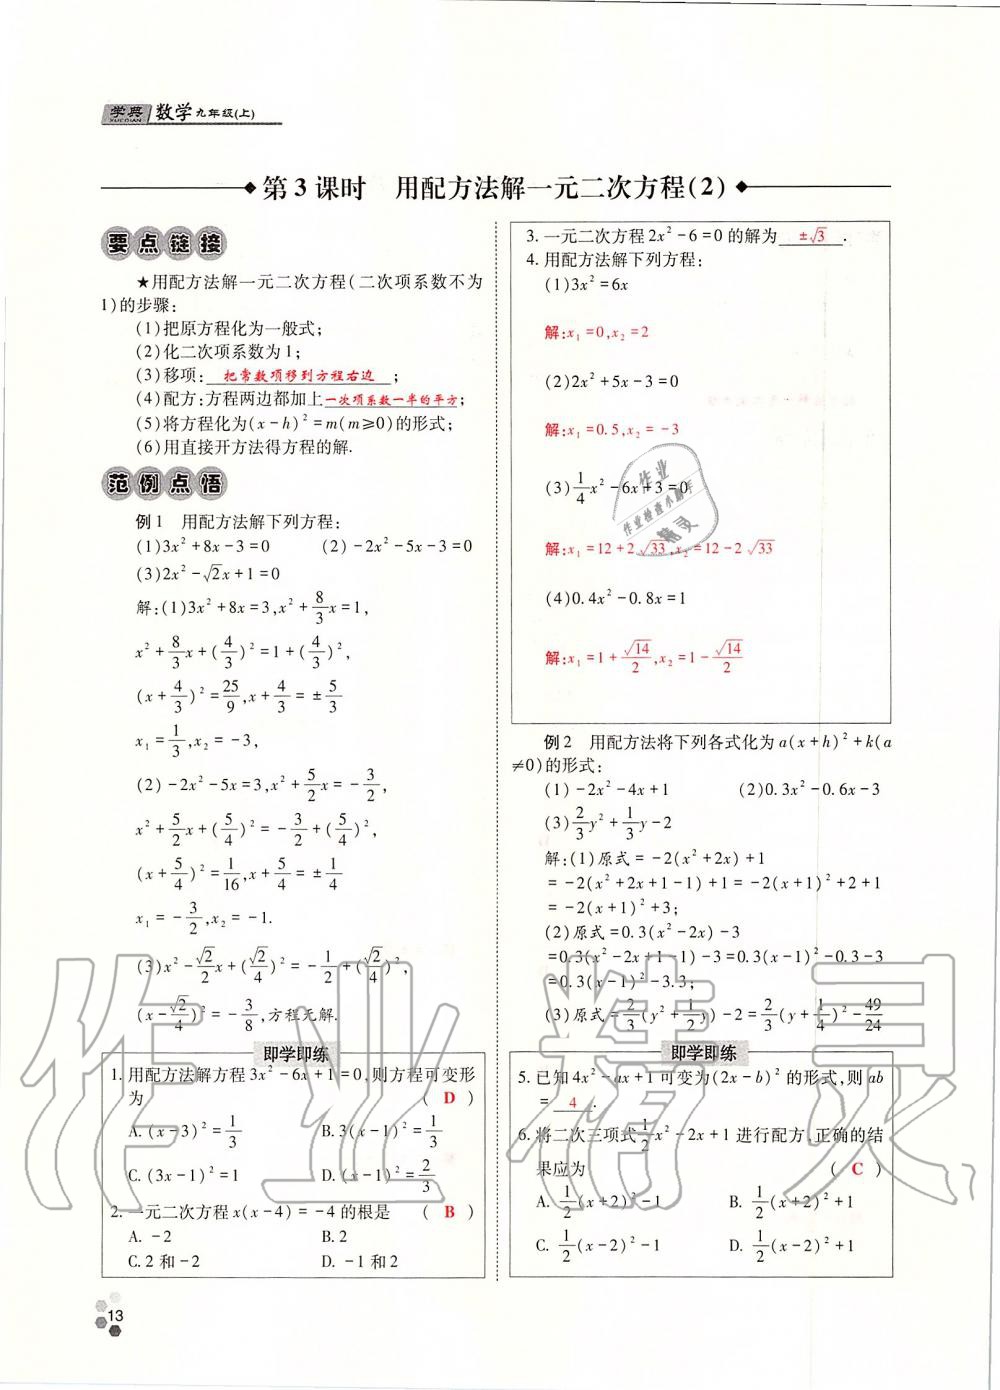 学典 数学九年级(上)
XUEDIAN
第3课时 用配方法解一元二次方程(2)
要点链接
★用配方法解一元二次方程(二次项系数不为
1)的步骤:
(1)把原方程化为一般式;
(2)化二次项系数为1;
(3)移项: 把常数项移到方程右边 ;
(4)配方:方程两边都加上一次项系数一半的平方;
(5)将方程化为(x-h)²=m(m≥0)的形式;
(6)用直接开方法得方程的解.
范例点悟
例1 用配方法解下列方程:
(1)3x²+8x-3=0 (2)-2x²-5x-3=0
(3)2x²-√2x+1=0
解:(1)3x²+8x=3,x²+8/3x=1,
x²+8/3x+(4/3)²=1+(4/3)²,
(x+4/3)²=25/9,x+4/3=±5/3
x₁=1/3,x₂=-3,
(2)-2x²-5x=3,x²+5/2x=-3/2,
x²+5/2x+(5/4)²=-3/2+(5/4)²,
(x+5/4)²=1/16,x+5/4=±1/4
x₁=-3/2,x₂=-1.
(3)x²-√2/2x+(√2/4)²=-1/2+(√2/4)²,
(x-√2/4)²=-3/8,方程无解.
即学即练
1. 用配方法解方程3x²-6x+1=0,则方程可变形
为 ( D )
A. (x-3)²=1/3 B. 3(x-1)²=1/3
C. (3x-1)²=1 D. (x-1)²=2/3
2. 一元二次方程x(x-4)=-4的根是 ( B )
A. -2 B. 2
C. 2和-2 D. -1和2
3. 一元二次方程2x²-6=0的解为 ±√3 .
4. 用配方法解下列方程:
(1)3x²=6x
解:x₁=0,x₂=2
(2)2x²+5x-3=0
解:x₁=0.5,x₂=-3
(3)1/4x²-6x+3=0
解:x₁=12+2√33,x₂=12-2√33
(4)0.4x²-0.8x=1
解:x₁=1+√14/2,x₂=1-√14/2
例2 用配方法将下列各式化为a(x+h)²+k(a
≠0)的形式:
(1)-2x²-4x+1 (2)0.3x²-0.6x-3
(3)2/3y²+1/3y-2
解:(1)原式=-2(x²+2x)+1
=-2(x²+2x+1-1)+1=-2(x+1)²+2+1
=-2(x+1)²+3;
(2)原式=0.3(x²-2x)-3
=0.3(x²-2x+1-1)-3=0.3(x-1)²-0.3-3
=0.3(x-1)²-3.3;
(3)原式=2/3(y²+1/2y)-2=2/3(y+1/4)²-49/24
即学即练
5. 已知4x²-ax+1可变为(2x-b)²的形式,则ab
= 4 .
6. 将二次三项式1/2x²-2x+1进行配方,正确的结
果应为 ( C )
A. 1/2(x+2)²-1 B. 1/2(x+2)²+1
C. 1/2(x-2)²-1 D. 1/2(x-2)²+1
13
作业精灵
作业
作业检查小助手
精灵